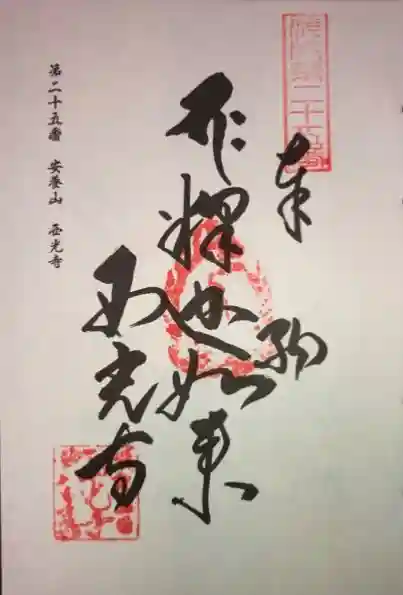 第二十五番
奉納
釋迦如来
西光寺
第二十五番 安養山 西光寺